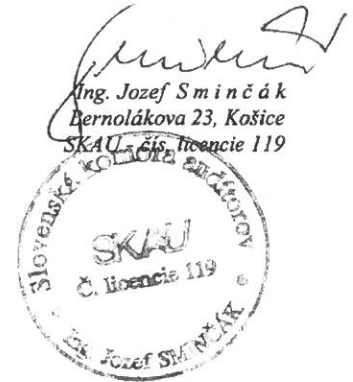 Ing. Jozef S m i n č á k
Bernolákova 23, Košice
SKAU - čís. licencie 119
Slovenská komora audítorov
SKAU
Č. licencie 119
Ing. Jozef SMINČÁK